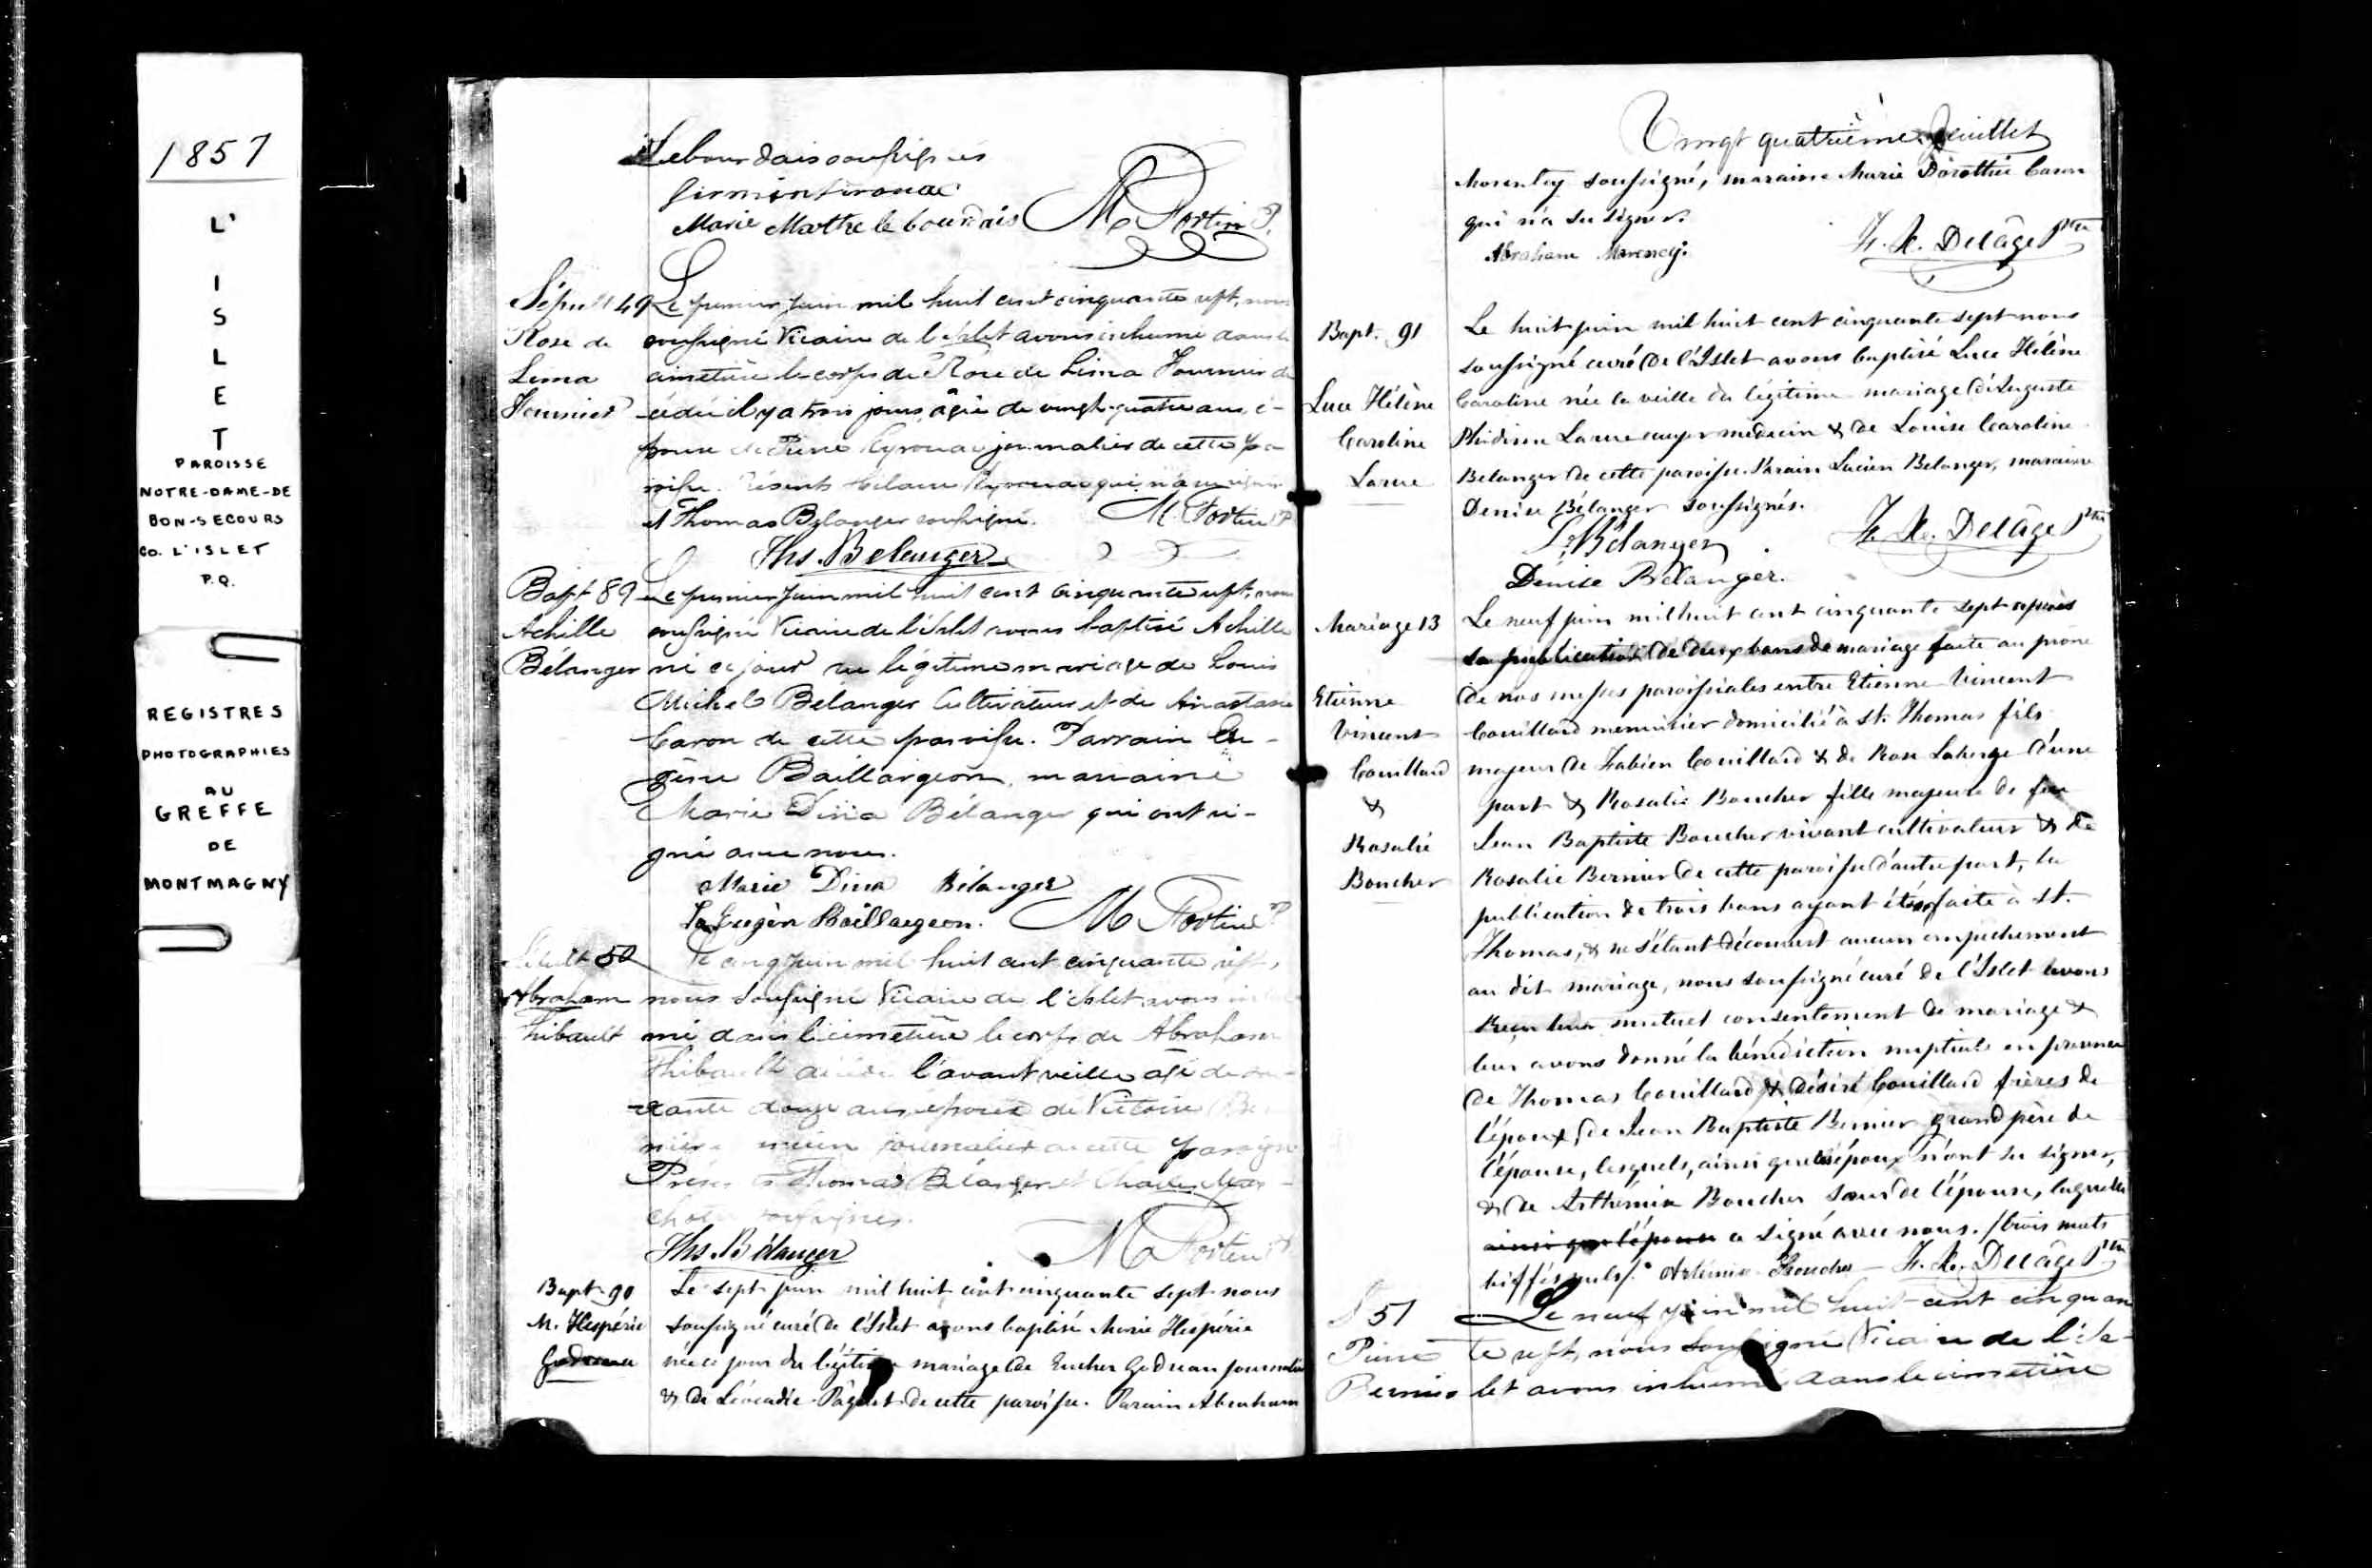 1857
L'
I
S
L
E
T
PAROISSE
NOTRE-DAME-DE
BON-SECOURS
CO. L'ISLET
P.Q.
REGISTRES
PHOTOGRAPHIES
AU
GREFFE
DE
MONTMAGNY
Lebourdais soussignés
Marie Marthe le bourdais M Fortin P.
Sépult 49 Le premier juin mil huit cent cinquante sept, nous
Rose de soussigné Vicaire de l'islet avons inhumé dans le
Lima cimetière le corps de Rose de Lima Fournier dé
Fournier cédée il y a trois jours âgée de vingt-quatre ans, é-
pouse de Pierre Kyrouac journalier de cette pa
roisse. Présents Hilaire Kyrouac qui n'a su signer
et Thomas Bélanger soussigné. M. Fortin P
Ths. Belanger
Bapt 89 Le premier juin mil huit cent cinquante sept, nous
Achille soussigné Vicaire de l'islet avons baptisé Achille
Bélanger né ce jour du légitime mariage de Louis
Michel Bélanger Cultivateur et de Anastasie
Caron de cette paroisse. Parrain Eu-
gène Baillargeon, marraine
Marie Dina Bélanger qui ont si-
gné avec nous.
Marie Dina Bélanger
Eugèn Baillargeon. M Fortin P
Sépult 50 Le cinq juin mil huit cent cinquante sept,
Abraham nous soussigné Vicaire de l'islet, avons inhu
Thibault mé dans le cimetière le corps de Abraham
Thibault décédé l'avant veille âgé de
xante douze ans époux de Victoire Ber
nier journalier de cette paroisse
Présents Thomas Bélanger et Charles
soussignés.
Ths. Bélanger M Fortin P
Bapt 90 Le sept juin mil huit cent cinquante sept nous
M. Hespérie soussigné curé de l'Islet avons baptisé Marie Hespérie
Godreau née ce jour du légitime mariage de Eucher Godreau journalier
& de Léocadie Pâquet de cette paroisse. Parain Abraham
Vingt quatrième Feuillet
Morency soussigné, maraine Marie Dorothée Caron
qui n'a su signer.
Abraham Morency. F. X. Delâge Ptre
Bapt. 91 Le huit juin mil huit cent cinquante sept nous
soussigné curé de l'Islet avons baptisé Luce Hélène
Luce Hélène Caroline née la veille du légitime mariage d'Auguste
Caroline Phidime Larue médecin & de Louise Caroline
Larue Belanger de cette paroisse. Parain Lucien Belanger, maraine
Denise Bélanger soussignés.
Bélanger F. X. Delâge Ptre
Dénise Bélanger.
Mariage 13 Le neuf juin mil huit cent cinquante sept après
la publication de deux bans de mariage faite au prône
Etienne de nos messes paroissiales entre Etienne Vincent
Vincent Couillard menuisier domicilié à St. Thomas fils
Couillard majeur de Fabien Couillard & de Rose Laberge d'une
& part & Rosalie Boucher fille majeure de feu
Rosalie Jean Baptiste Boucher vivant cultivateur & de
Boucher Rosalie Bernier de cette paroisse d'autre part, la
publication de trois bans ayant été faite à St.
Thomas, & ne s'étant découvert aucun empêchement
au dit mariage, nous soussigné curé de l'Islet avons
Reçu leur mutuel consentement de mariage &
leur avons donné la bénédiction nuptiale en présence
de Thomas Couillard & Désiré Couillard frères de
l'époux, de Jean Baptiste Bernier grand père de
l'épouse, lesquels, ainsi que l'époux n'ont su signer,
& de Arthémise Boucher sœur de l'épouse, laquelle
ainsi que l'épouse a signé avec nous. /trois mots
biffés nuls/. Artémise Boucher F. X. Delâge Ptre
S 51 Le neuf juin mil huit cent cinquan
Pierre te sept, nous soussigné Vicaire de l'is-
Bernier let avons inhumé dans le cimetière